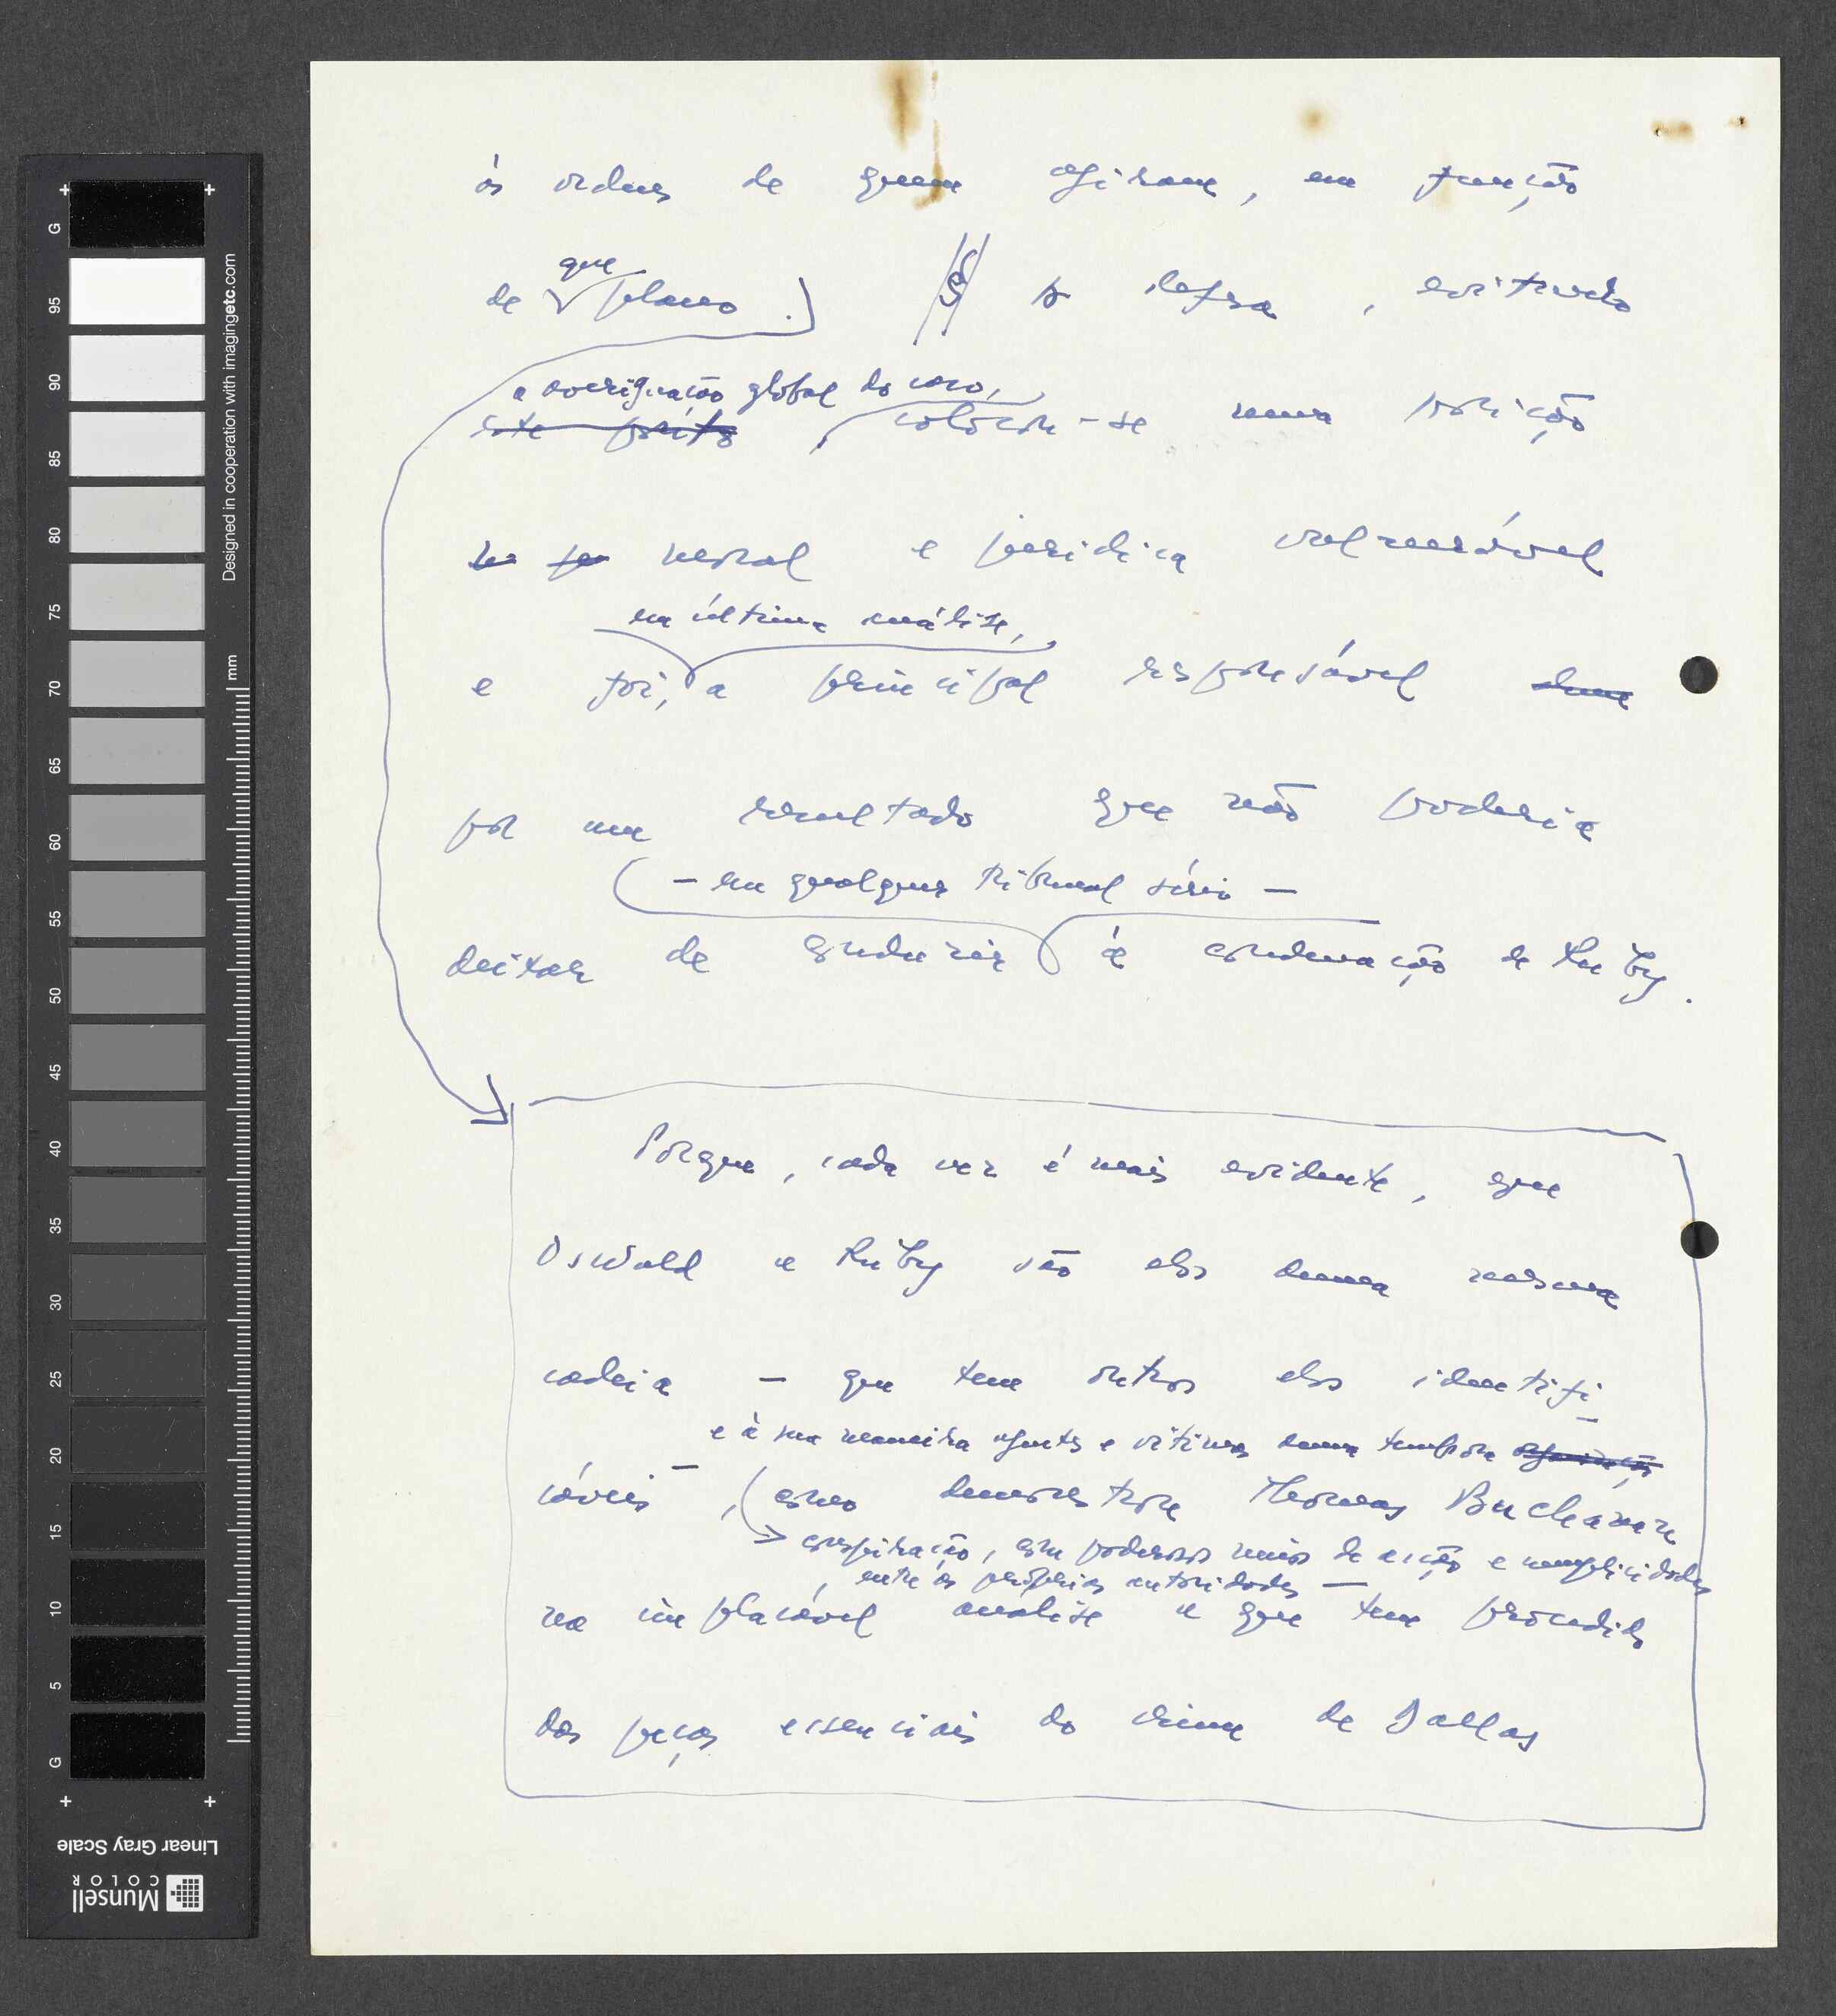 às ordens de quem agiram, em função
que
de plano .
§ A defesa, evitando
a averiguação global do caso,
este ponto, colocou-se numa posição
moral e jurídica vulnerável
em última análise,
e foi, a principal responsável duma
por um resultado que não poderia
– em qualquer tribunal sério –
deixar de conduzir à condenação de Ruby.
Porque, cada vez é mais evidente, que
Oswald e Ruby são elos duma mesma
cadeia – que tem outros elos identifi-
e à sua maneira agentes e vítimas duma tenebrosa organização
cáveis – , como demonstrou Thomas Buchanan
conspiração, com poderosos meios de acção e cumplicidades
entre as próprias autoridades –
na implacável análise a que tem procedido
das peças essenciais do crime de Dallas
G 95 90 85 80 75 70 65 60 55 50 45 40 35 30 25 20 15 10 5 G
mm
Designed in cooperation with imagingetc.com
Linear Gray Scale
Munsell
COLOR